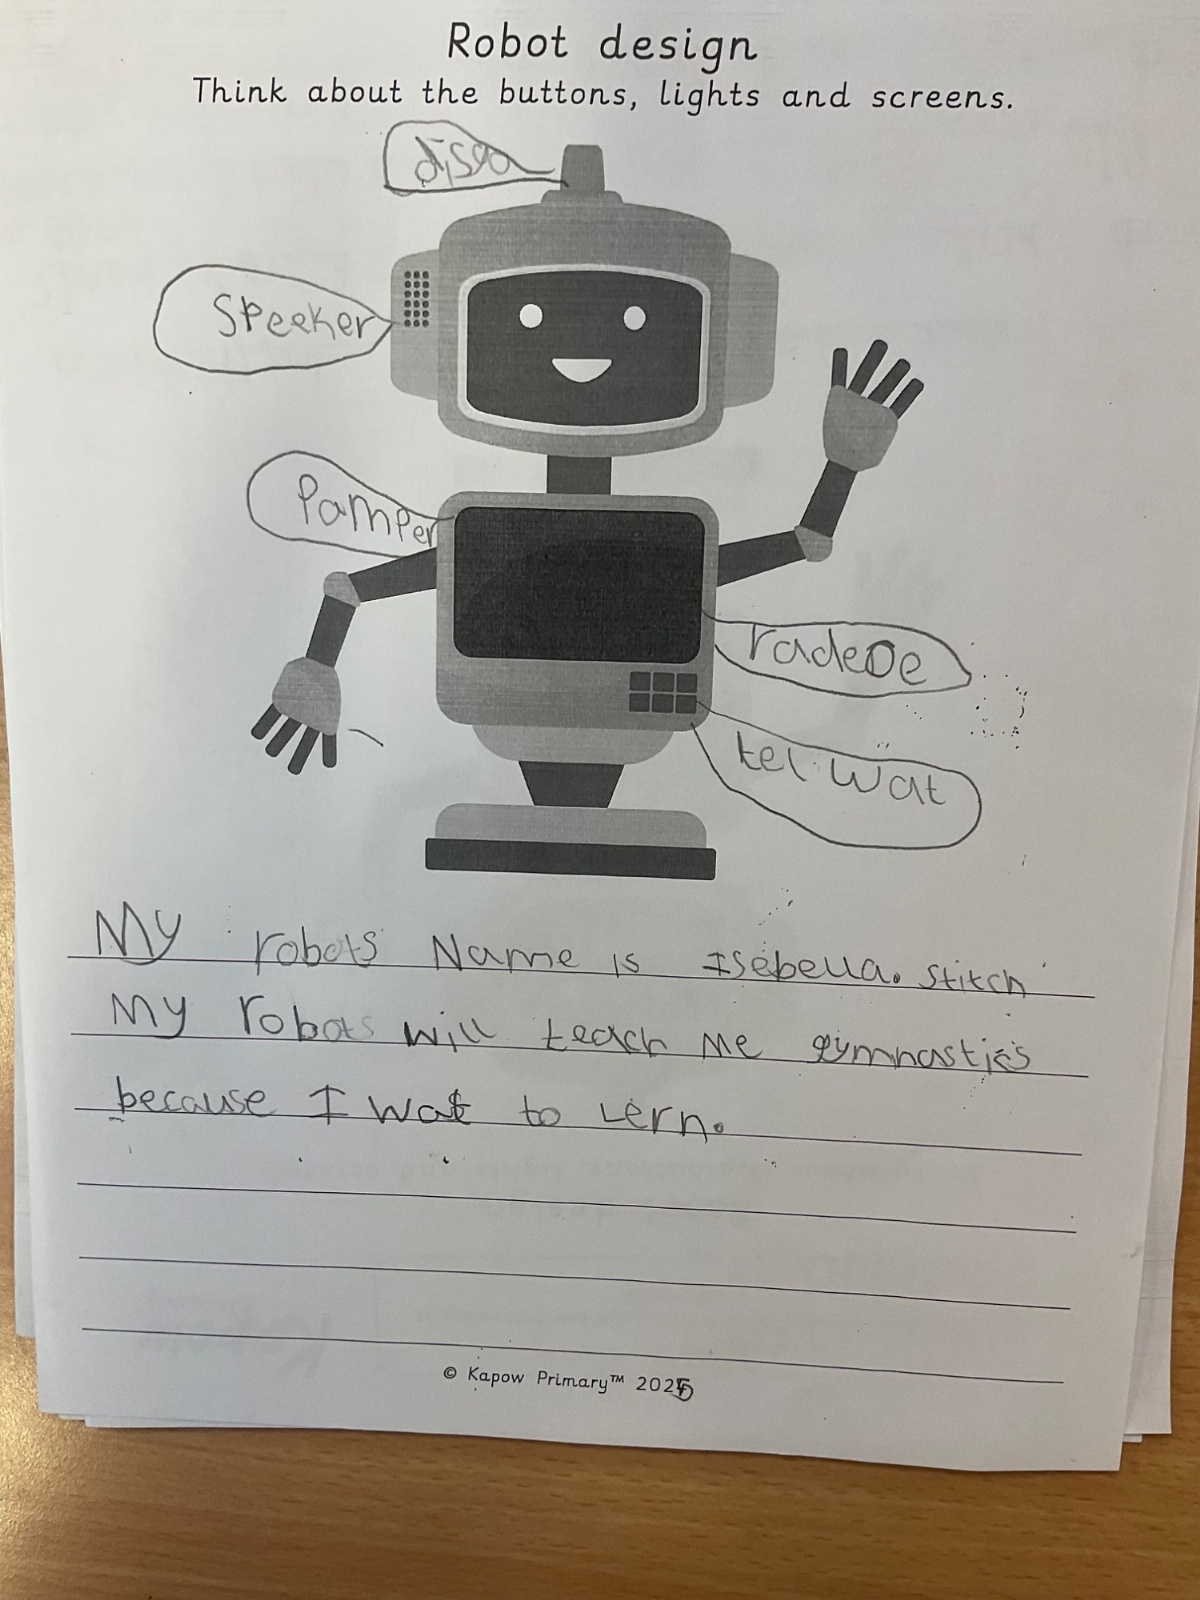 Robot design
Think about the buttons, lights and screens.
disco
Speeker
Pamper
radeoe
tel wat
My robots Name is Isebella. Stitch
My robots will teach me gymnastics
because I wat to lern.
© Kapow Primary™ 2025